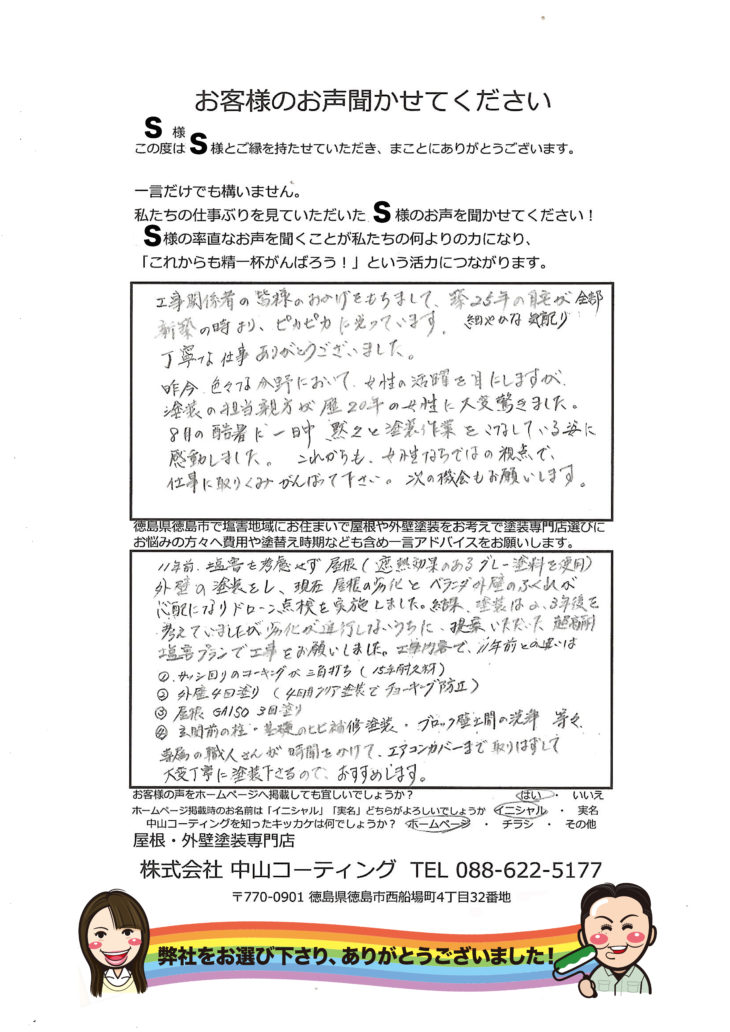 お客様のお声聞かせてください
S 様
この度は S 様とご縁を持たせていただき、まことにありがとうございます。
一言だけでも構いません。
私たちの仕事ぶりを見ていただいた S 様のお声を聞かせてください！
S 様の率直なお声を聞くことが私たちの何よりの力になり、
「これからも精一杯がんばろう！」という活力につながります。
工事関係者の皆様のおかげをもちまして、築25年の自宅が全部
新築の時より、ピカピカに光っています。細やかな気配り
丁寧な仕事ありがとうございました。
昨今、色々な分野において、女性の活躍を耳にしますが、
塗装の担当親方が歴20年の女性に大変驚きました。
8月の酷暑に一日中黙々と塗装作業をこなしている姿に
感動しました。これからも、女性ならではの視点で、
仕事に取りくみがんばって下さい。次の機会もお願いします。
徳島県徳島市で塩害地域にお住まいで屋根や外壁塗装をお考えで塗装専門店選びに
お悩みの方々へ費用や塗替え時期なども含め一言アドバイスをお願いします。
11年前、塩害を考慮せず屋根（遮熱効果のあるグレー塗料を使用）
外壁の塗装をし、現在屋根の劣化とベランダ外壁のふくれが
心配になりドローン点検を実施しました。結果、塗装は2,3年後を
考えていましたが劣化が進行しないうちに、提案いただいた超高耐
塩害プランで工事をお願いしました。工事内容で、11年前との違いは
①サッシ回りのコーキングが三角打ち（15年耐久材）
②外壁4回塗り（4回目クリア塗装でチョーキング防止）
③屋根 GAISO 3回塗り
④玄関前の柱・基礎のヒビ補修塗装・ブロック塀土間の洗浄 等々
専属の職人さんが時間をかけて、エアコンカバーまで取りはずして
大変丁寧に塗装下さるので、おすすめします。
お客様の声をホームページへ掲載しても宜しいでしょうか？ はい ・ いいえ
ホームページ掲載時のお名前は「イニシャル」「実名」どちらがよろしいでしょうか イニシャル ・ 実名
中山コーティングを知ったキッカケは何でしょうか？ ホームページ ・ チラシ ・ その他
屋根・外壁塗装専門店
株式会社 中山コーティング TEL 088-622-5177
〒770-0901 徳島県徳島市西船場町4丁目32番地
弊社をお選び下さり、ありがとうございました！